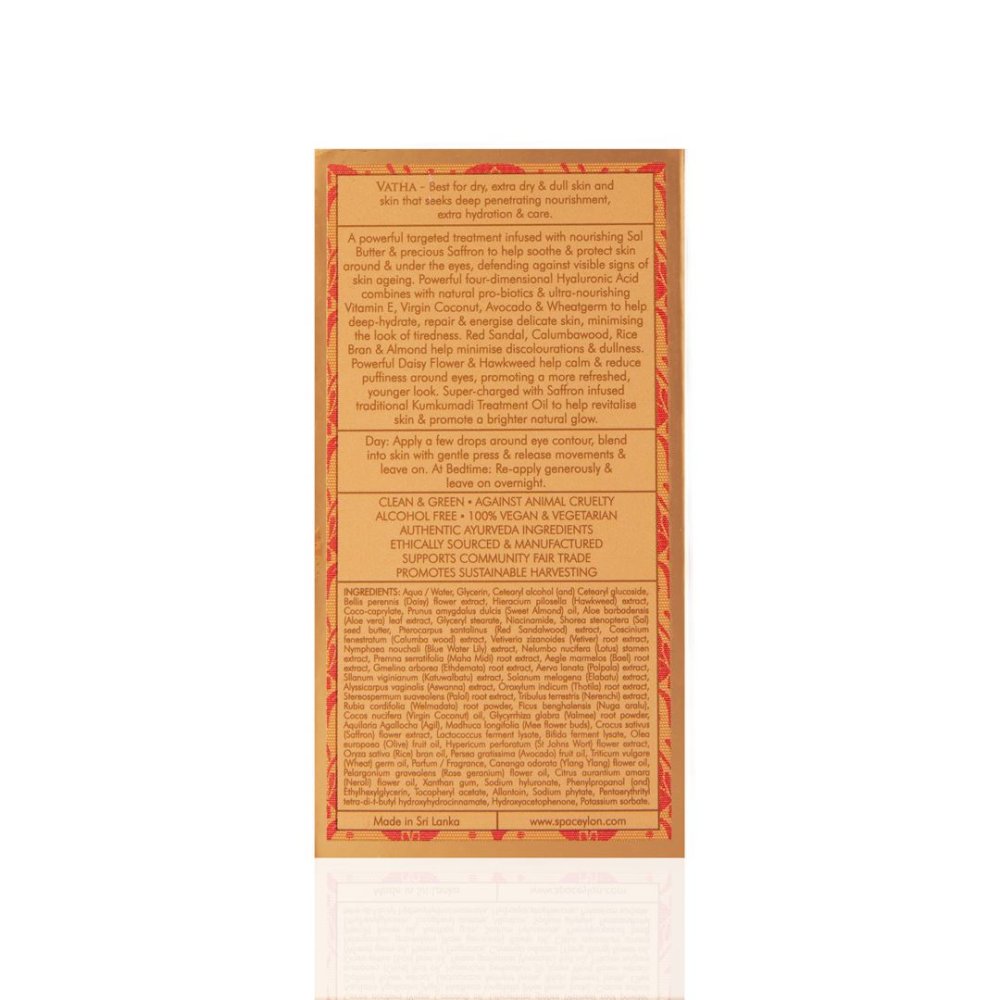 VATHA - Best for dry, extra dry & dull skin and
skin that seeks deep penetrating nourishment,
extra hydration & care.
A powerful targeted treatment infused with nourishing Sal
Butter & precious Saffron to help soothe & protect skin
around & under the eyes, defending against visible signs of
skin ageing. Powerful four-dimensional Hyaluronic Acid
combines with natural pro-biotics & ultra-nourishing
Vitamin E, Virgin Coconut, Avocado & Wheatgerm to help
deep-hydrate, repair & energise delicate skin, minimising
the look of tiredness. Red Sandal, Calumbawood, Rice
Bran & Almond help minimise discolourations & dullness.
Powerful Daisy Flower & Hawkweed help calm & reduce
puffiness around eyes, promoting a more refreshed,
younger look. Super-charged with Saffron infused
traditional Kumkumadi Treatment Oil to help revitalise
skin & promote a brighter natural glow.
Day: Apply a few drops around eye contour, blend
into skin with gentle press & release movements &
leave on. At Bedtime: Re-apply generously &
leave on overnight.
CLEAN & GREEN • AGAINST ANIMAL CRUELTY
ALCOHOL FREE • 100% VEGAN & VEGETARIAN
AUTHENTIC AYURVEDA INGREDIENTS
ETHICALLY SOURCED & MANUFACTURED
SUPPORTS COMMUNITY FAIR TRADE
PROMOTES SUSTAINABLE HARVESTING
INGREDIENTS: Aqua / Water, Glycerin, Cetearyl alcohol (and) Cetearyl glucoside,
Bellis perennis (Daisy) flower extract, Hieracium pilosella (Hawkweed) extract,
Coco-caprylate, Prunus amygdalus dulcis (Sweet Almond) oil, Aloe barbadensis
(Aloe vera) leaf extract, Glyceryl stearate, Niacinamide, Shorea stenoptera (Sal)
seed butter, Pterocarpus santalinus (Red Sandalwood) extract, Coscinium
fenestratum (Calumba wood) extract, Vetiveria zizanoides (Vetiver) root extract,
Nymphaea nouchali (Blue Water Lily) extract, Nelumbo nucifera (Lotus) stamen
extract, Premna serratifolia (Maha Midi) root extract, Aegle marmelos (Bael) root
extract, Gmelina arborea (Ethdemata) root extract, Aerva lanata (Polpala) extract,
Sllanum viginianum (Katuwalbatu) extract, Solanum melogena (Elabatu) extract,
Alyssicarpus vaginalis (Aswanna) extract, Oroxylum indicum (Thotila) root extract,
Stereospermum suaveolens (Palol) root extract, Tribulus terrestris (Nerenchi) extract,
Rubia cordifolia (Welmadata) root powder, Ficus benghalensis (Nuga aralu),
Cocos nucifera (Virgin Coconut) oil, Glycyrrhiza glabra (Valmee) root powder,
Aquilaria Agallocha (Agil), Madhuca longifolia (Mee flower buds), Crocus sativus
(Saffron) flower extract, Lactococcus ferment lysate, Bifida ferment lysate, Olea
europaea (Olive) fruit oil, Hypericum perforatum (St Johns Wort) flower extract,
Oryza sativa (Rice) bran oil, Persea gratissima (Avocado) fruit oil, Triticum vulgare
(Wheat) germ oil, Parfum / Fragrance, Cananga odorata (Ylang Ylang) flower oil,
Pelargonium graveolens (Rose geranium) flower oil, Citrus aurantium amara
(Neroli) flower oil, Xanthan gum, Sodium hyluronate, Phenylpropanol (and)
Ethylhexylglycerin, Tocopheryl acetate, Allantoin, Sodium phytate, Pentaerythrityl
tetra-di-t-butyl hydroxyhydrocinnamate, Hydroxyacetophenone, Potassium sorbate.
Made in Sri Lanka
www.spaceylon.com